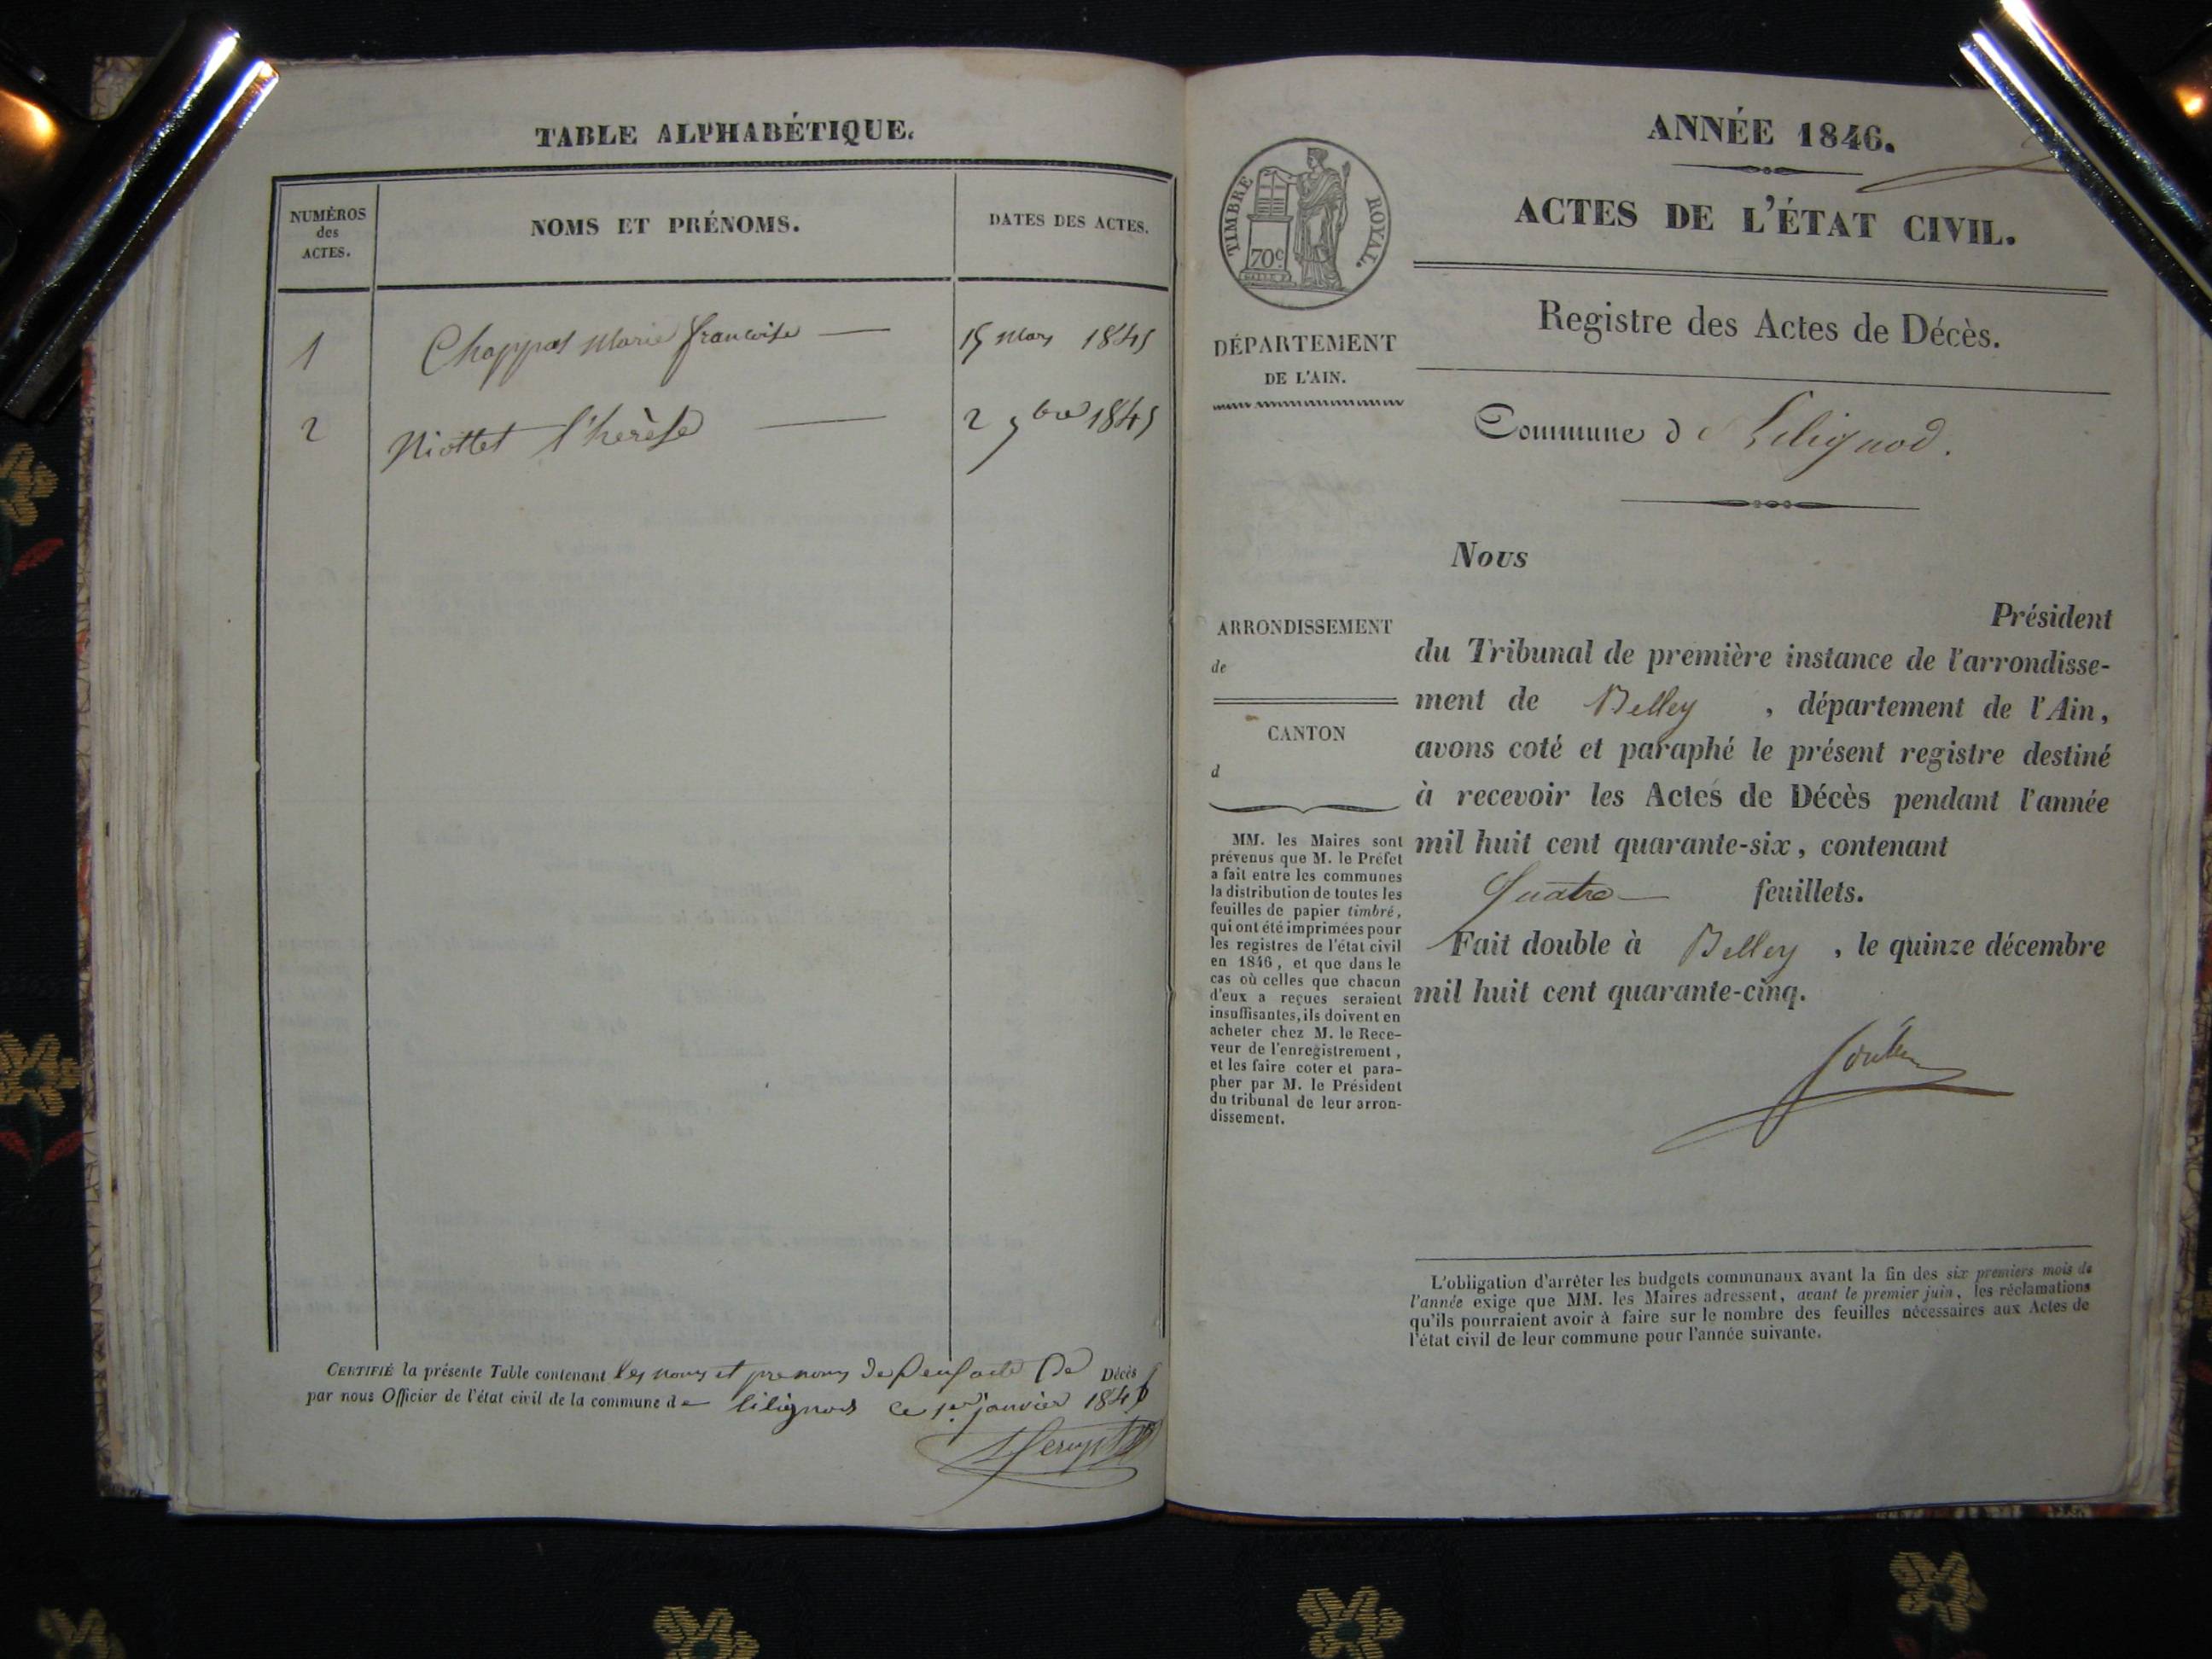 TABLE ALPHABÉTIQUE.
NUMÉROS des ACTES.
NOMS ET PRÉNOMS.
DATES DES ACTES.
1 Chappas Marie francoise — 15 mars 1845
2 Niottet thérèse — 2 9bre 1845
CERTIFIÉ la présente Table contenant les noms et prenoms de Décès
par nous Officier de l'état civil de la commune de lilignod ce 1er janvier 1846
ANNÉE 1846.
ACTES DE L'ÉTAT CIVIL.
TIMBRE ROYAL.
70c
Registre des Actes de Décès.
DÉPARTEMENT
DE L'AIN.
Commune d Lilignod.
Nous
Président
du Tribunal de première instance de l'arrondisse-
ment de Belley , département de l'Ain,
avons coté et paraphé le présent registre destiné
à recevoir les Actes de Décès pendant l'année
mil huit cent quarante-six, contenant
Quatre — feuillets.
Fait double à Belley , le quinze décembre
mil huit cent quarante-cinq.
ARRONDISSEMENT
de
CANTON
d
MM. les Maires sont
prévenus que M. le Préfet
a fait entre les communes
la distribution de toutes les
feuilles de papier timbré,
qui ont été imprimées pour
les registres de l'état civil
en 1846, et que dans le
cas où celles que chacun
d'eux a reçues seraient
insuffisantes, ils doivent en
acheter chez M. le Rece-
veur de l'enregistrement,
et les faire coter et para-
pher par M. le Président
du tribunal de leur arron-
dissement.
L'obligation d'arrêter les budgets communaux avant la fin des six premiers mois de
l'année exige que MM. les Maires adressent, avant le premier juin, les réclamations
qu'ils pourraient avoir à faire sur le nombre des feuilles nécessaires aux Actes de
l'état civil de leur commune pour l'année suivante.